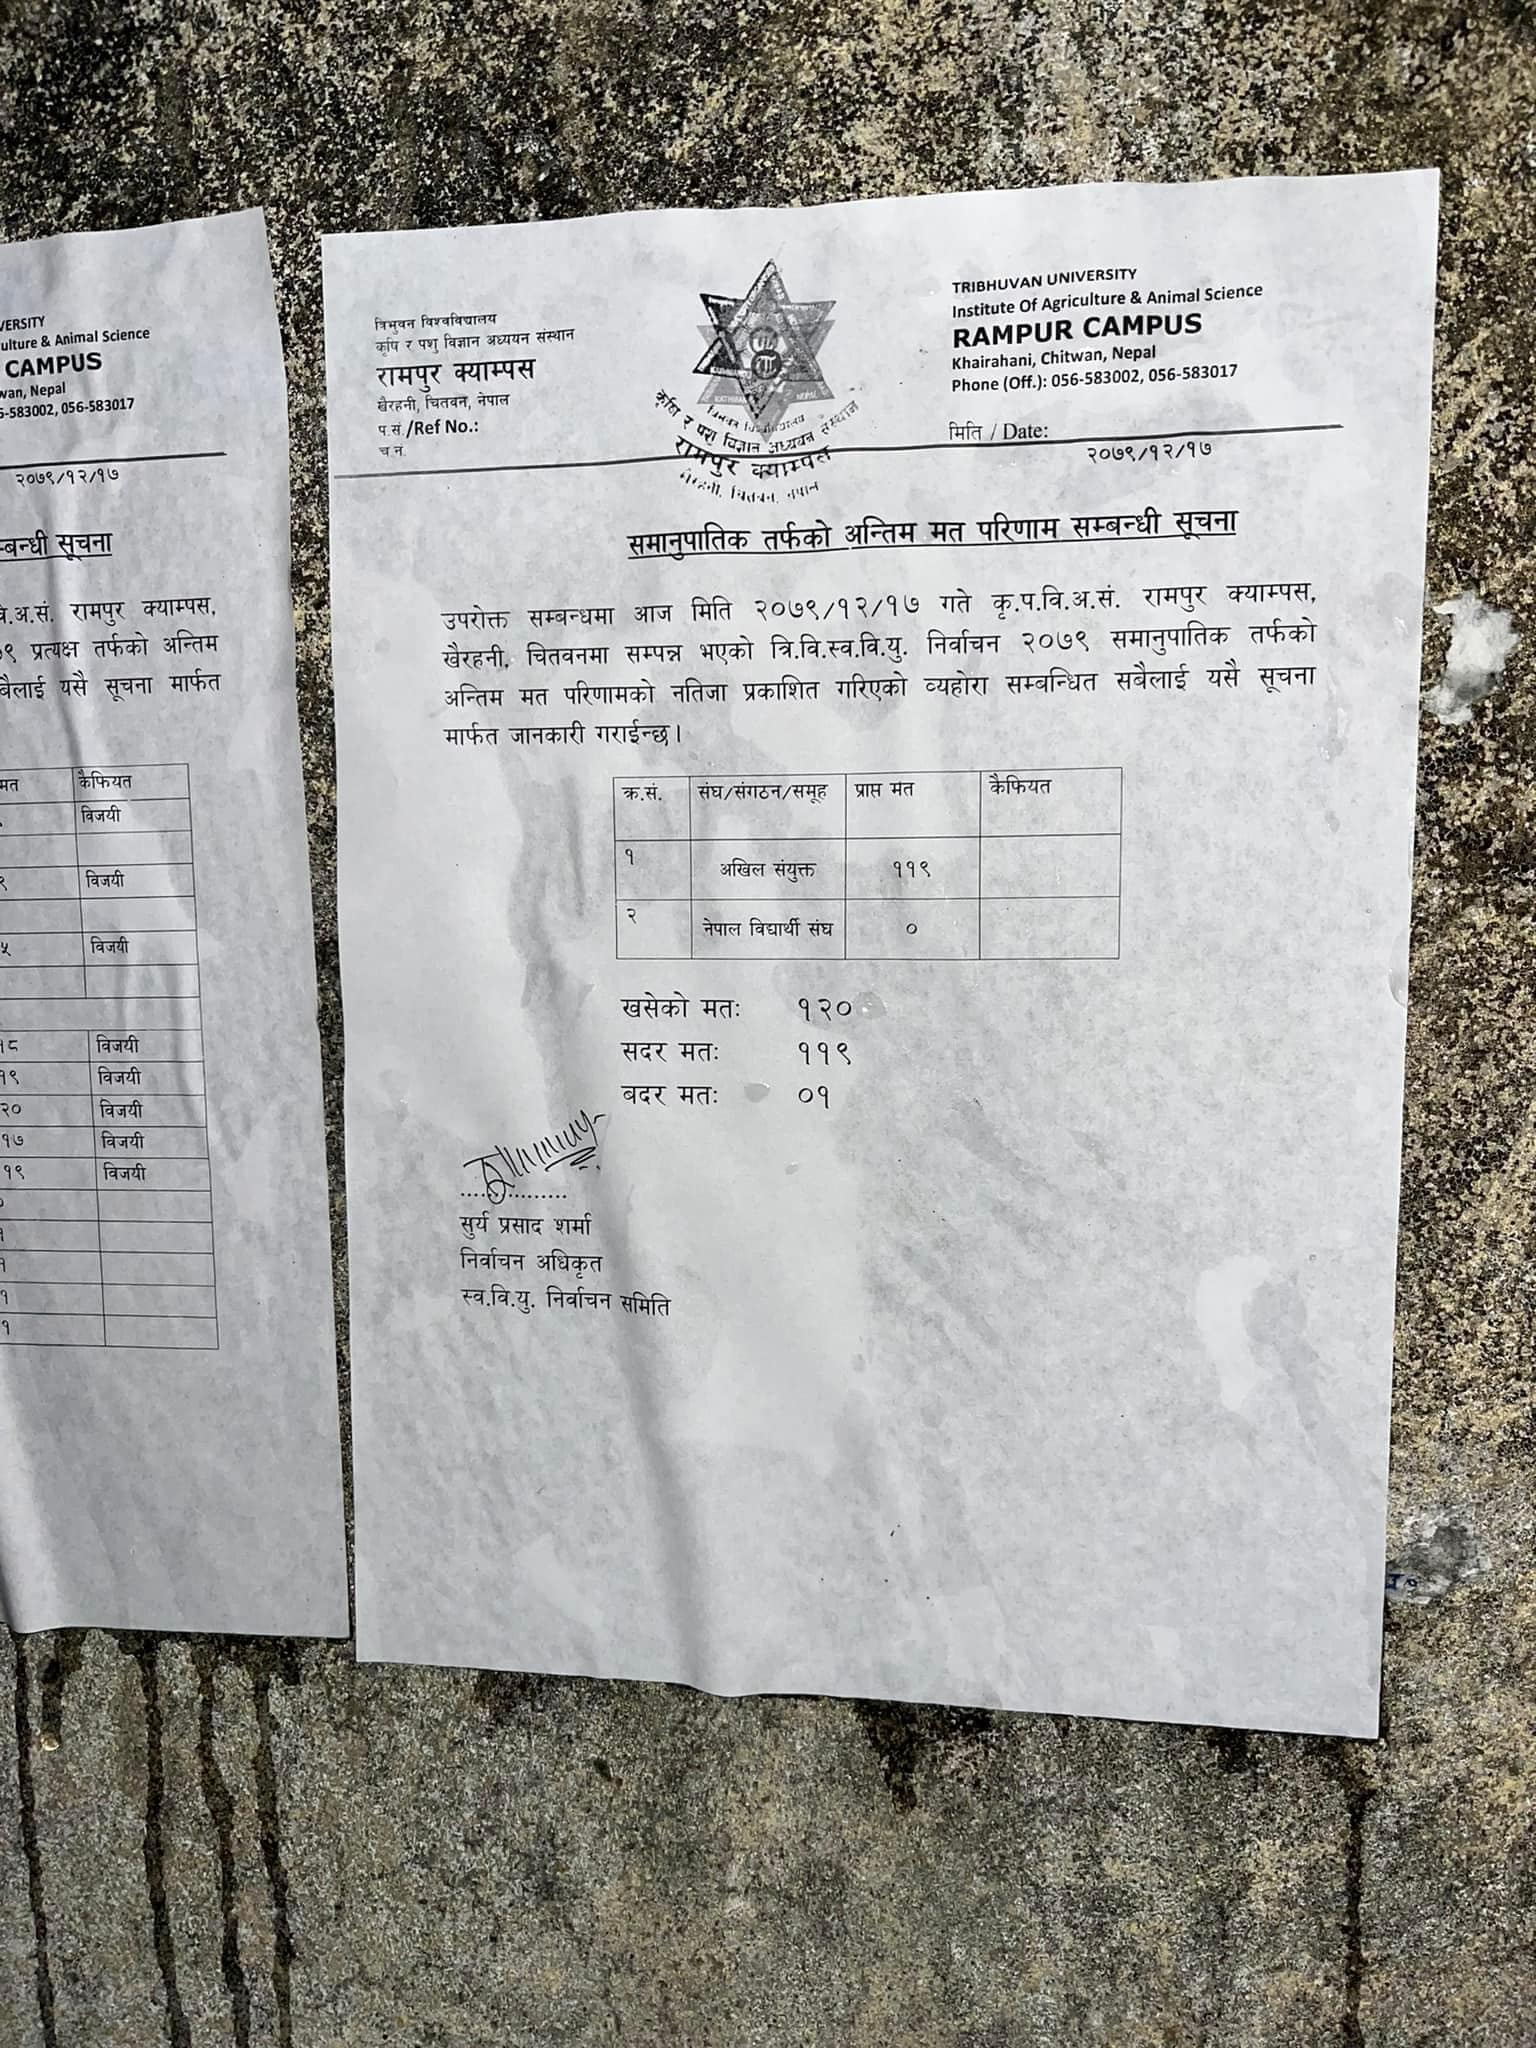 VERSITY
ulture & Animal Science
CAMPUS
wan, Nepal
6-583002, 056-583017
२०७९/१२/१७
म्बन्धी सूचना
वि.अ.सं. रामपुर क्याम्पस,
७९ प्रत्यक्ष तर्फको अन्तिम
बैलाई यसै सूचना मार्फत
मत कैफियत
विजयी
९ विजयी
५ विजयी
१८ विजयी
१९ विजयी
२० विजयी
१७ विजयी
१९ विजयी
०
१
१
१
१
त्रिभुवन विश्वविद्यालय
कृषि र पशु विज्ञान अध्ययन संस्थान
रामपुर क्याम्पस
खैरहनी, चितवन, नेपाल
प.सं./Ref No.:
च.नं.
त्रिभुवन विश्वविद्यालय
कृषि र पशु विज्ञान अध्ययन संस्थान
रामपुर क्याम्पस
खैरहनी, चितवन, नेपाल
TRIBHUVAN UNIVERSITY
Institute Of Agriculture & Animal Science
RAMPUR CAMPUS
Khairahani, Chitwan, Nepal
Phone (Off.): 056-583002, 056-583017
मिति / Date:
२०७९/१२/१७
समानुपातिक तर्फको अन्तिम मत परिणाम सम्बन्धी सूचना
उपरोक्त सम्बन्धमा आज मिति २०७९/१२/१७ गते कृ.प.वि.अ.सं. रामपुर क्याम्पस,
खैरहनी, चितवनमा सम्पन्न भएको त्रि.वि.स्व.वि.यु. निर्वाचन २०७९ समानुपातिक तर्फको
अन्तिम मत परिणामको नतिजा प्रकाशित गरिएको व्यहोरा सम्बन्धित सबैलाई यसै सूचना
मार्फत जानकारी गराईन्छ।
क्र.सं. संघ/संगठन/समूह प्राप्त मत कैफियत
१ अखिल संयुक्त ११९
२ नेपाल विद्यार्थी संघ ०
खसेको मतः १२०
सदर मतः ११९
बदर मतः ०१
..................
सुर्य प्रसाद शर्मा
निर्वाचन अधिकृत
स्व.वि.यु. निर्वाचन समिति